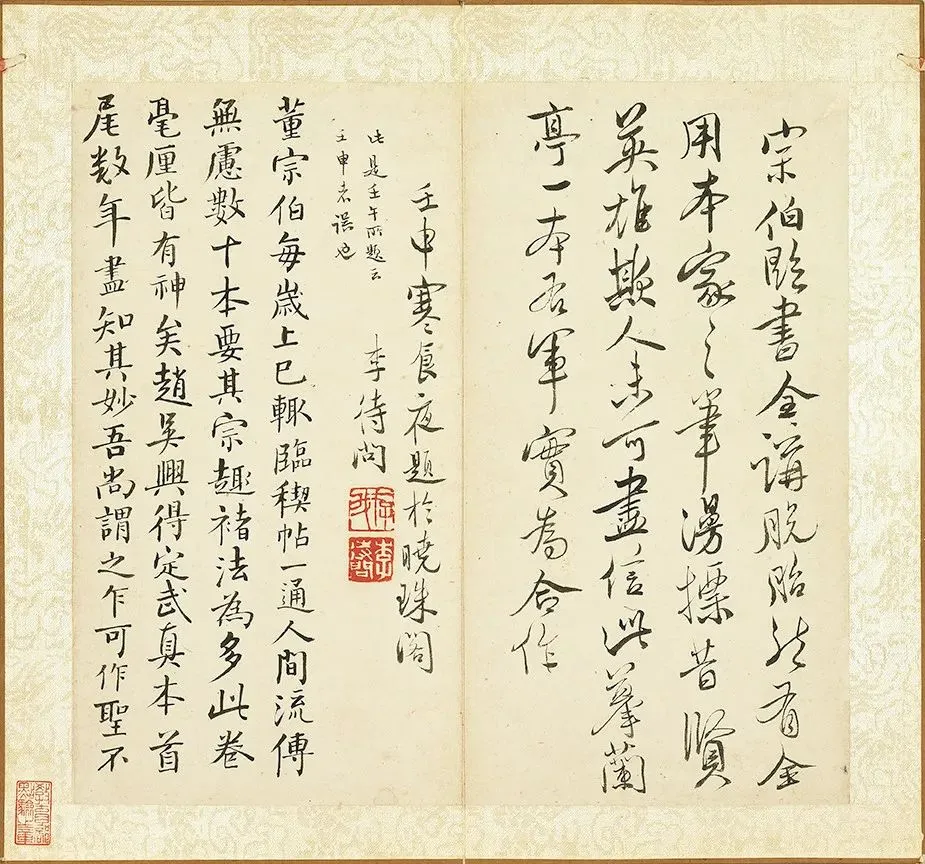 宗伯臨書全講脫胎然有全
用本家之筆漫標昔賢
英雄欺人未可盡信此摹蘭
亭一本右軍實為合作
壬申寒食夜題於曉珠閣
此是壬午所題云
壬申者誤也
李待問
李待問
董宗伯每歲上巳輒臨稧帖一通人間流傳
無慮數十本要其宗趣褚法為多此卷
毫厘皆有神矣趙吳興得定武真本首
尾数年盡知其妙吾尚謂之乍可作聖不